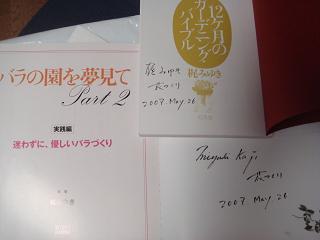 バラの園を夢見て
Part 2
実践編
迷わずに、優しいバラづくり
12ヶ月の
ガーデニング
バイブル
梶みゆき
梶みゆき
2007. May. 26
Miyuki Kaji
2007. May 26